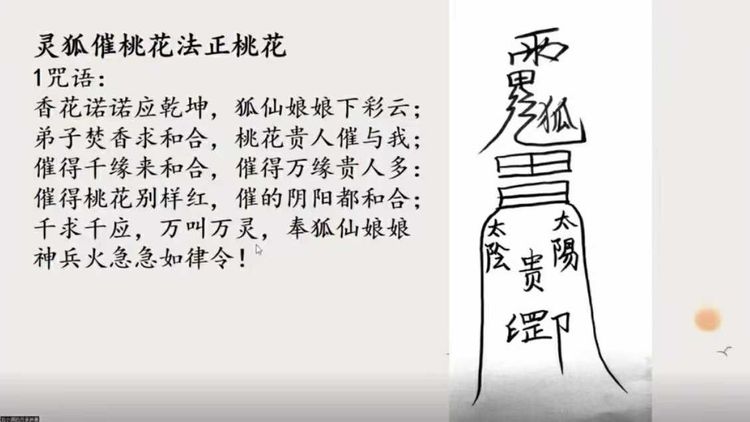 灵狐催桃花法正桃花
1咒语：
香花诺诺应乾坤，狐仙娘娘下彩云；
弟子焚香求和合，桃花贵人催与我；
催得千缘来和合，催得万缘贵人多：
催得桃花别样红，催的阴阳都和合；
千求千应，万叫万灵，奉狐仙娘娘
神兵火急急如律令！
雨
狐
太陰
太陽
贵